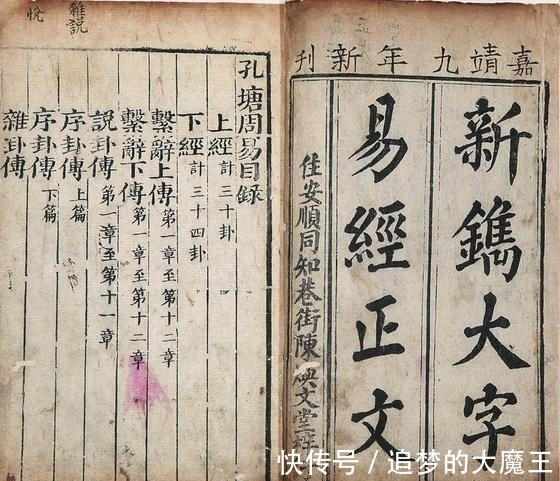 嘉靖九年新刊
新鐫大字
易經正文
住安順同知巷街陳文堂梓
孔塘周易目錄
上經計三十卦
下經計三十四卦
繫辭上傳第一章至第十二章
繫辭下傳第一章至第十二章
說卦傳第一章至第十一章
序卦傳上篇
序卦傳下篇
雜卦傳
雜説
悅
快传号 / 追梦的大魔王